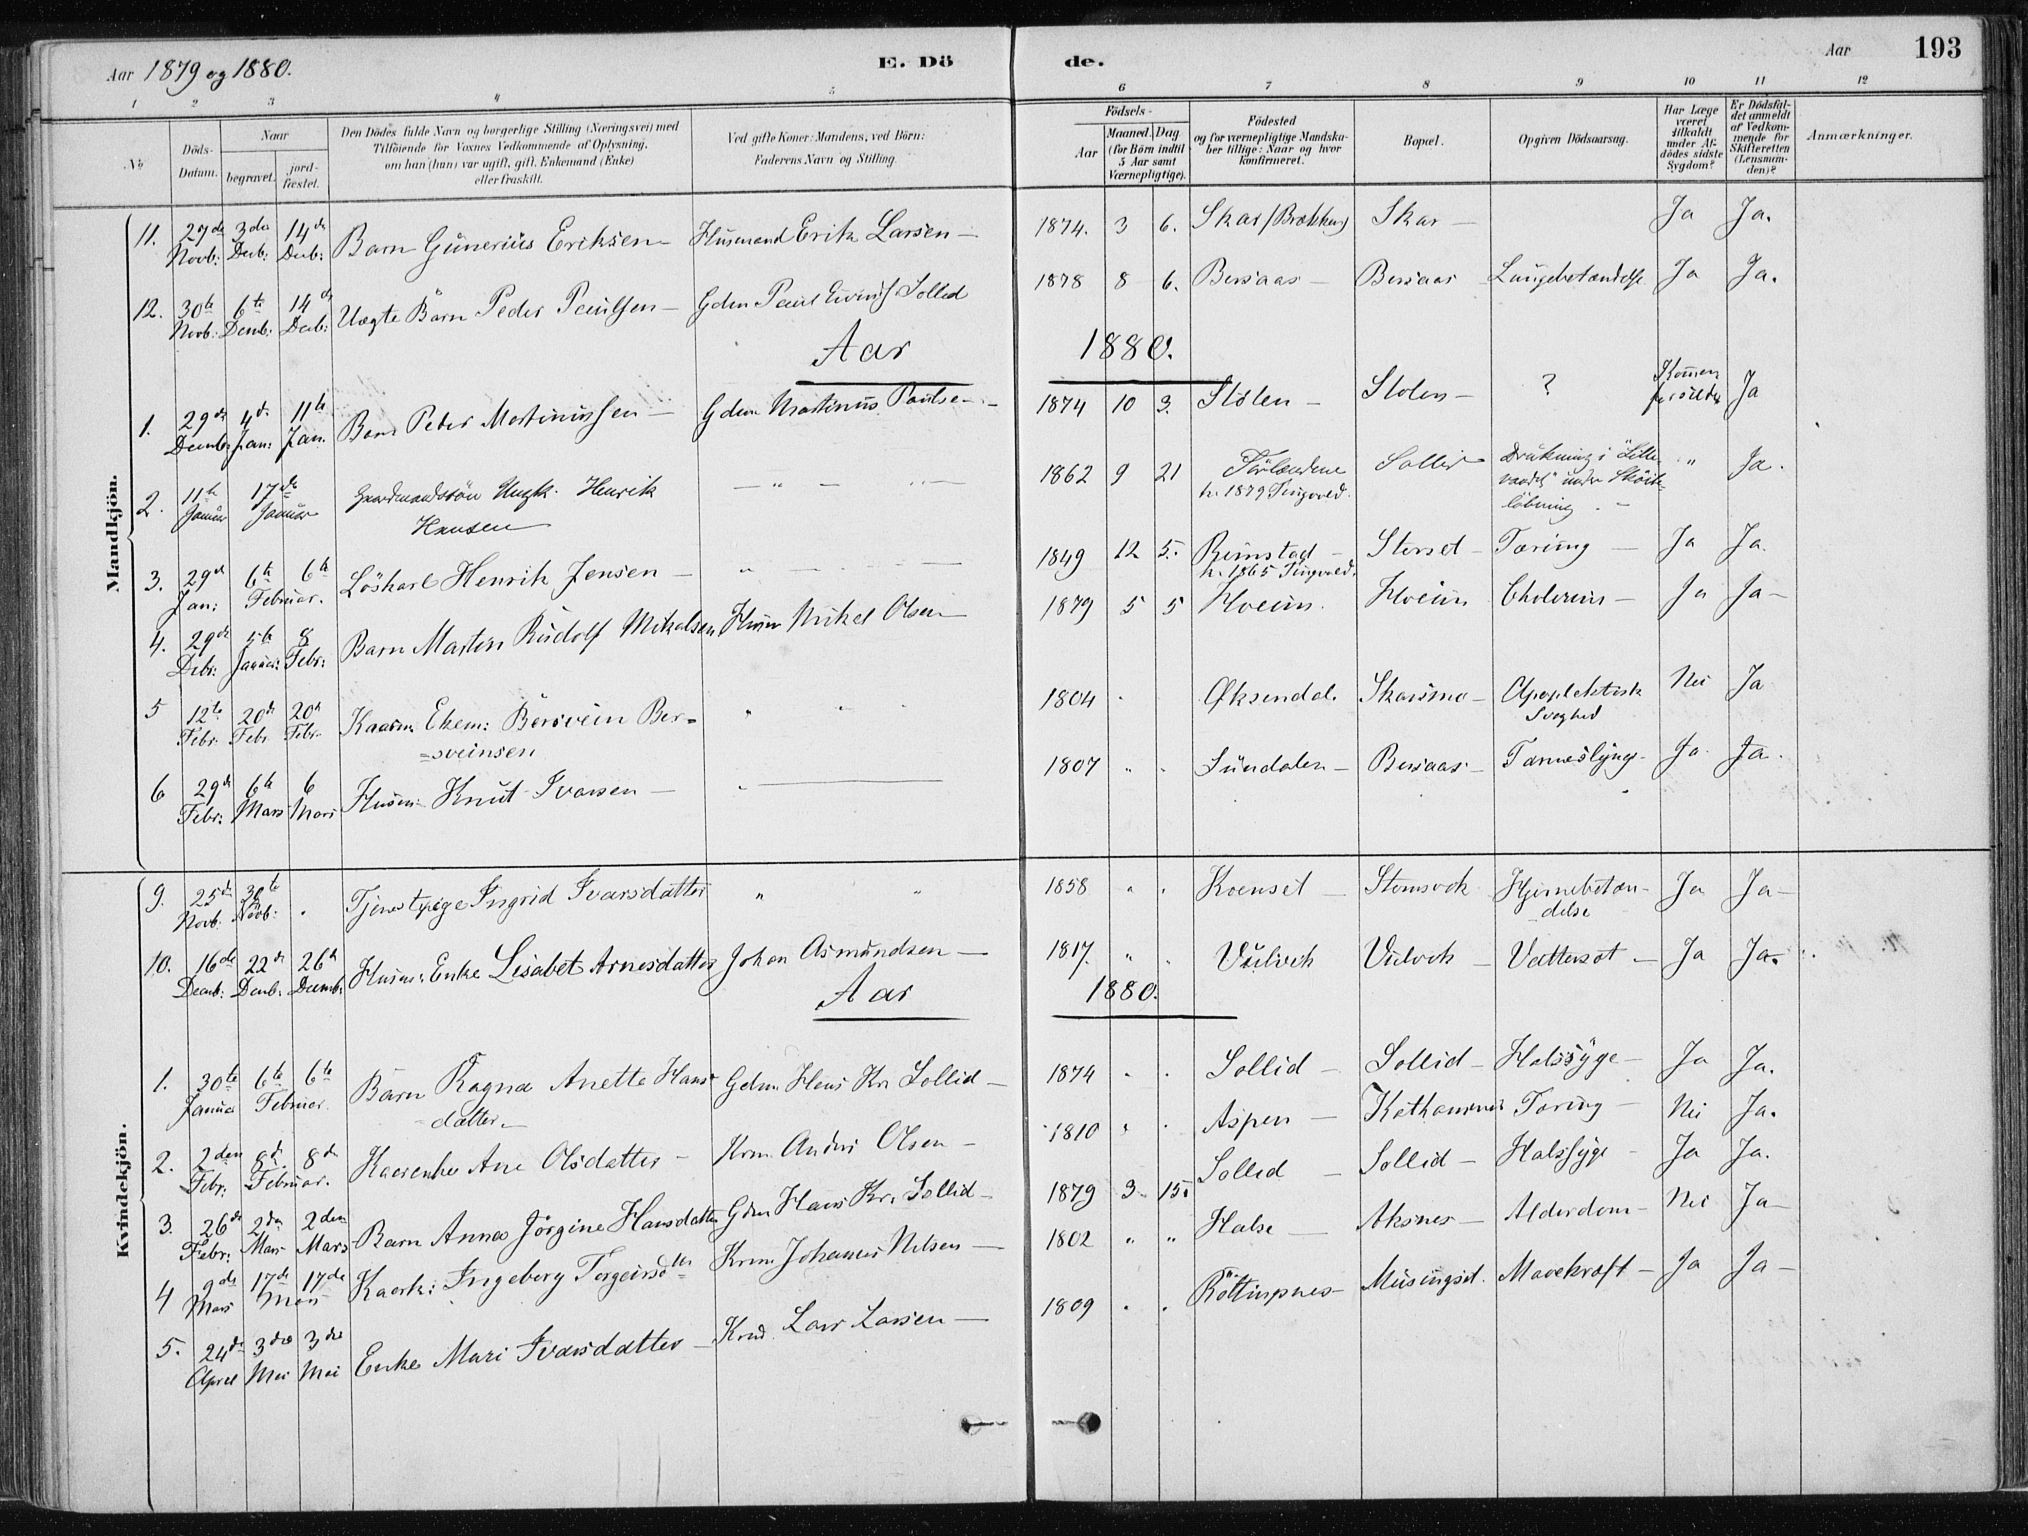 Aar 1879 og 1880.
E. Döde.
Aar
193
1 2 3 4 5 6 7 8 9 10 11 12
No
Döds-Datum.
Naar
begravet.
jord-fæstet.
Den Dödes fulde Navn og borgerlige Stilling (Næringsvei) med
Tilföiende for Voxnes Vedkommende af Oplysning,
om han (hun) var ugift, gift, Enkemand (Enke)
eller fraskilt.
Ved gifte Koner: Mandens, ved Börn:
Faderens Navn og Stilling.
Födsels-
Aar
Maaned. Dag
(for Börn indtil
5 Aar samt
Værnepligtige).
Födested
og for værnepligtige Mandska-
ber tillige: Naar og hvor
konfirmeret.
Bopæl.
Opgiven Dödsaarsag.
Har Læge
været
tilkaldt
under Af-
dödes sidste
Sygdom?
Er Dödsfal-
det anmeldt
af Vedkom-
mende for
Skifteretten
(Lensman-
den)?
Anmærkninger.
Mandkjön.
11. 29de Novb: 3die Decb: 14de Decb: Barn Gunerius Eriksen — Husmand Erik Larsen — 1874. 3 6. Skar (Brækken) Skar — Ja Ja.
12. 30te Novb: 6te Decmb: 14de Decb: Uægte Barn Peder Paulsen — Gdm Paul Sollid 1878 8 6. Bersaas — Bersaas Lungebetændelse Ja Ja.
Aar 1880.
1. 29de Decmb: 4de Jan: 11te Jan. Barn Peder Martinussen — Gdm Martinus Paulsen — 1874 10 3. Stölen — Stolen — ? Ja
2. 11te Januar 17de Januar Gaardmandssön Ungk. Henrik
Hansen — " — " — 1862 9 21 Törlændene
k. 1879 Tingvold. Sollid Drukning i "Lille
vandet" under Sköite-
löbning. — " Ja.
3. 29de Jan: 6te 6te Februar. Löskarl Henrik Jensen — " — — 1849 12 5. Rimstad —
k. 1865 Tingvold. Storset — Tæring — Ja Ja.
4. 29de Debr: 5te Januar: 8 Febr: Barn Martin Rudolf Mikalsen Husm Mikel Olsen — 1879 5 5 Hoeim. Hoeim Cholerine — Ja Ja —
5 12te Febr. 20de Febr 20de Febr. Kaarm. Ekem: Bersvein Ber-
-sveinsen " " " 1804 . Øksendal. Skarsmo — Apoplektisk
Svaghed Nei Ja
6 29de Febr: 6te Mars 6 Mars Husm: Knut Ivarsen — " — 1807 " . Sundalen — Bersaas — Tarmeslyng — Ja Ja.
Kvindekjön.
9. 25de Novb. 30te Novb: . Tjenestpige Ingrid Ivarsdatter " " 1858 " . Koenset — Stomsvek Hjernebetæn-
delse Ja Ja —
10. 16de Decmb: 22de Decmb: 26de Decmb: Husm: Enke Lisabet Arnesdatter Johan Asmundsen — 1817. " . Vulvek Vulvek — Vattersot — Ja Ja.
Aar 1880.
1. 30te Januar 6te 6te Februar Barn Ragna Anette Hans-
datter — Gdm. Hans Kr. Sollid — 1874 . . Sollid — Sollid — Halssyge — Ja Ja.
2. 2den Febr. 8de 8de Februar. Kaarenke Ane Olsdatter — Krm. Anders Olsen — 1810 " . Aspen — Tæring — Nei Ja.
3. 26de Febr: 2den Mars 2den Mars Barn Anna Jörgine Hansdatter Gdm Hans Kr. Sollid — 1879 3 15. Sollid — Sollid — Halssyge — Ja Ja.
4 9de Mars 17de 17de Mars Kaark: Ingeborg Torgeirsdtter Krm. Johannes Nilsen — 1802 " " Halse — Aksnes — Alderdom — Nei Ja —
5. 24de April 3die Mai 3die Mai Enke Mari Ivarsdatter — Krm. Lars Larsen — 1809 . . Mavekræft — Ja Ja —